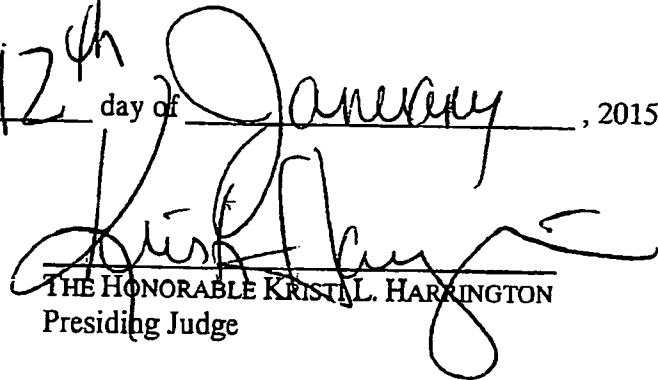 12th day of January, 2015
Kristi Harrington
THE HONORABLE KRISTI L. HARRINGTON
Presiding Judge